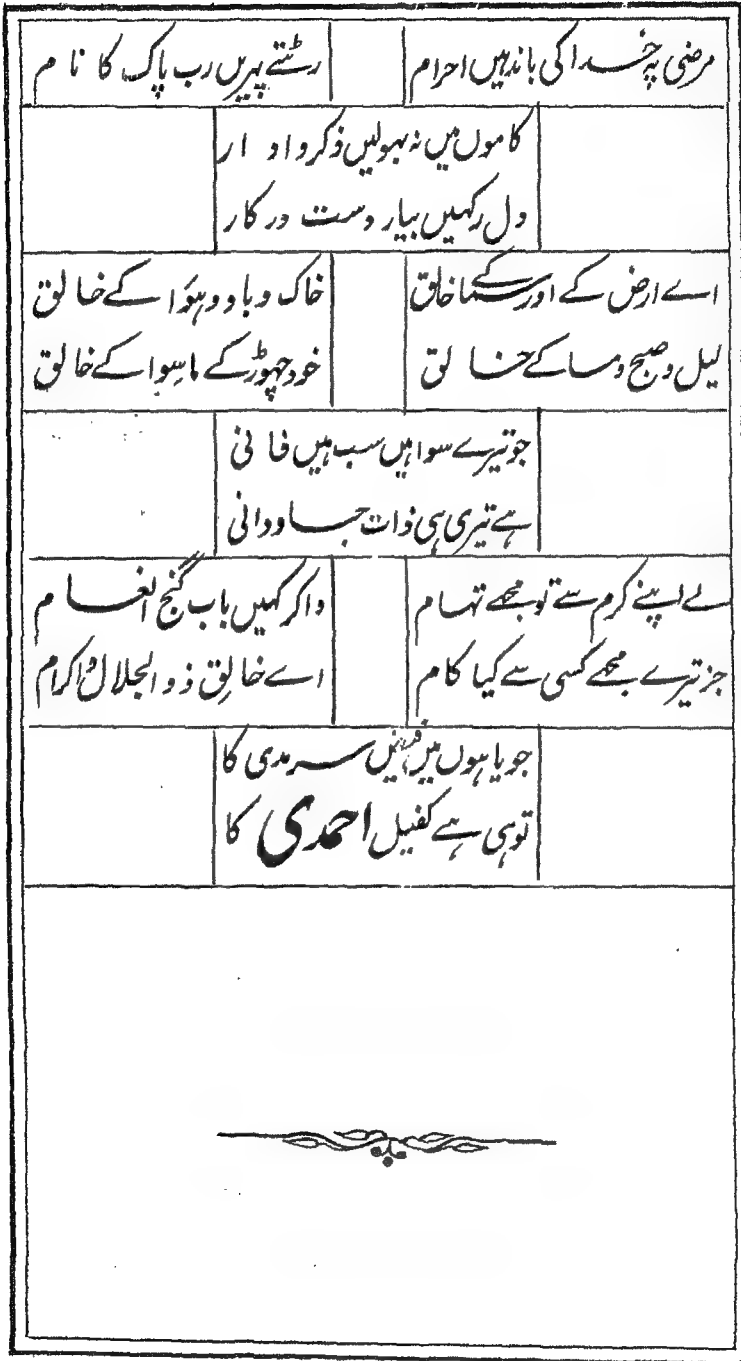 مرضی پہ خدا کی باندہیں احرام رٹتے پہریں رب پاک کا نام
کاموں میں نہ بہولیں ذکر و اذکار
دل رکہیں بیار دست در کار
اے ارض کے اور سما کے خالق خاک و باد و ہوا کے خالق
لیل و صبح و مسا کے خالق خود چہوڑ کے ماسوا کے خالق
جو تیرے سوا ہیں سب ہیں فانی
ہے تیری ہی ذات جاودانی
لے اپنے کرم سے تو مجھے تہام وا کر کہیں باب گنج انعام
جز تیرے مجھے کسی سے کیا کام اے خالق ذوالجلال و اکرام
جویا ہوں میں سرمدی کا
تو ہی ہے کفیل احمدی کا